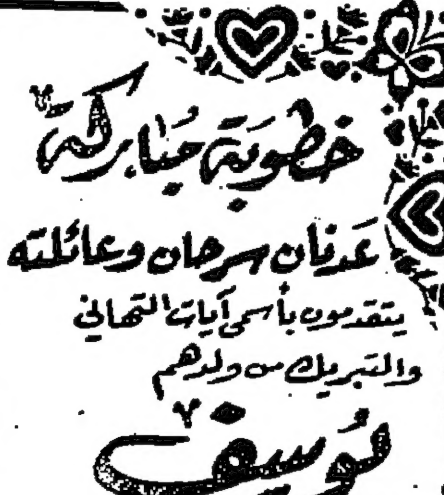 خطوبة مباركة
عدنان سرحان وعائلته
يتقدمون بأسمى آيات التهاني
والتبريك من ولدهم
يوسف